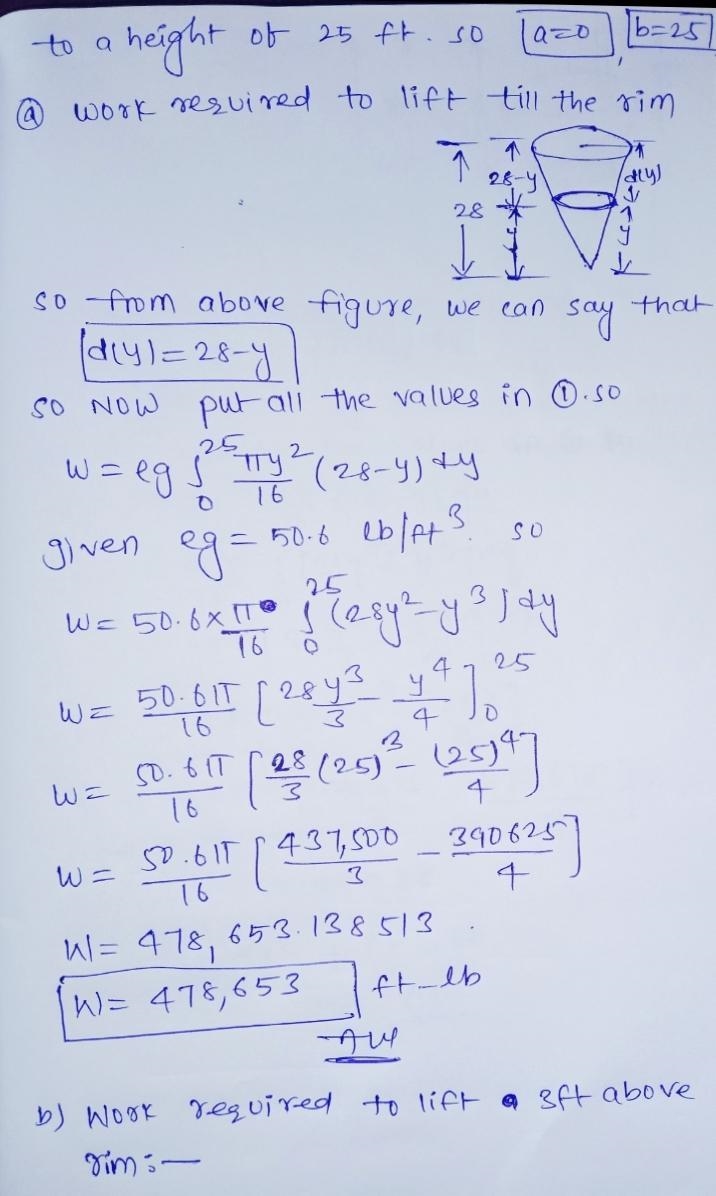 to a height of 25 ft. so a=0, b=25
ⓐ work required to lift till the rim
28-y
d(y)
28
y
y
so from above figure, we can say that
d(y)=28-y
so NOW put all the values in ①. so
W = ρg ∫₀²⁵ πy²/16 (28-y) dy
given ρg = 50.6 lb/ft³. so
W = 50.6×π/16 ∫₀²⁵ (28y²-y³) dy
W = 50.6π/16 [28y³/3 - y⁴/4]₀²⁵
W = 50.6π/16 [28/3 (25)³ - (25)⁴/4]
W = 50.6π/16 [437,500/3 - 390625/4]
W = 478,653.138513.
W = 478,653 ft-lb
Ans
b) Work required to lift 3ft above
rim:—